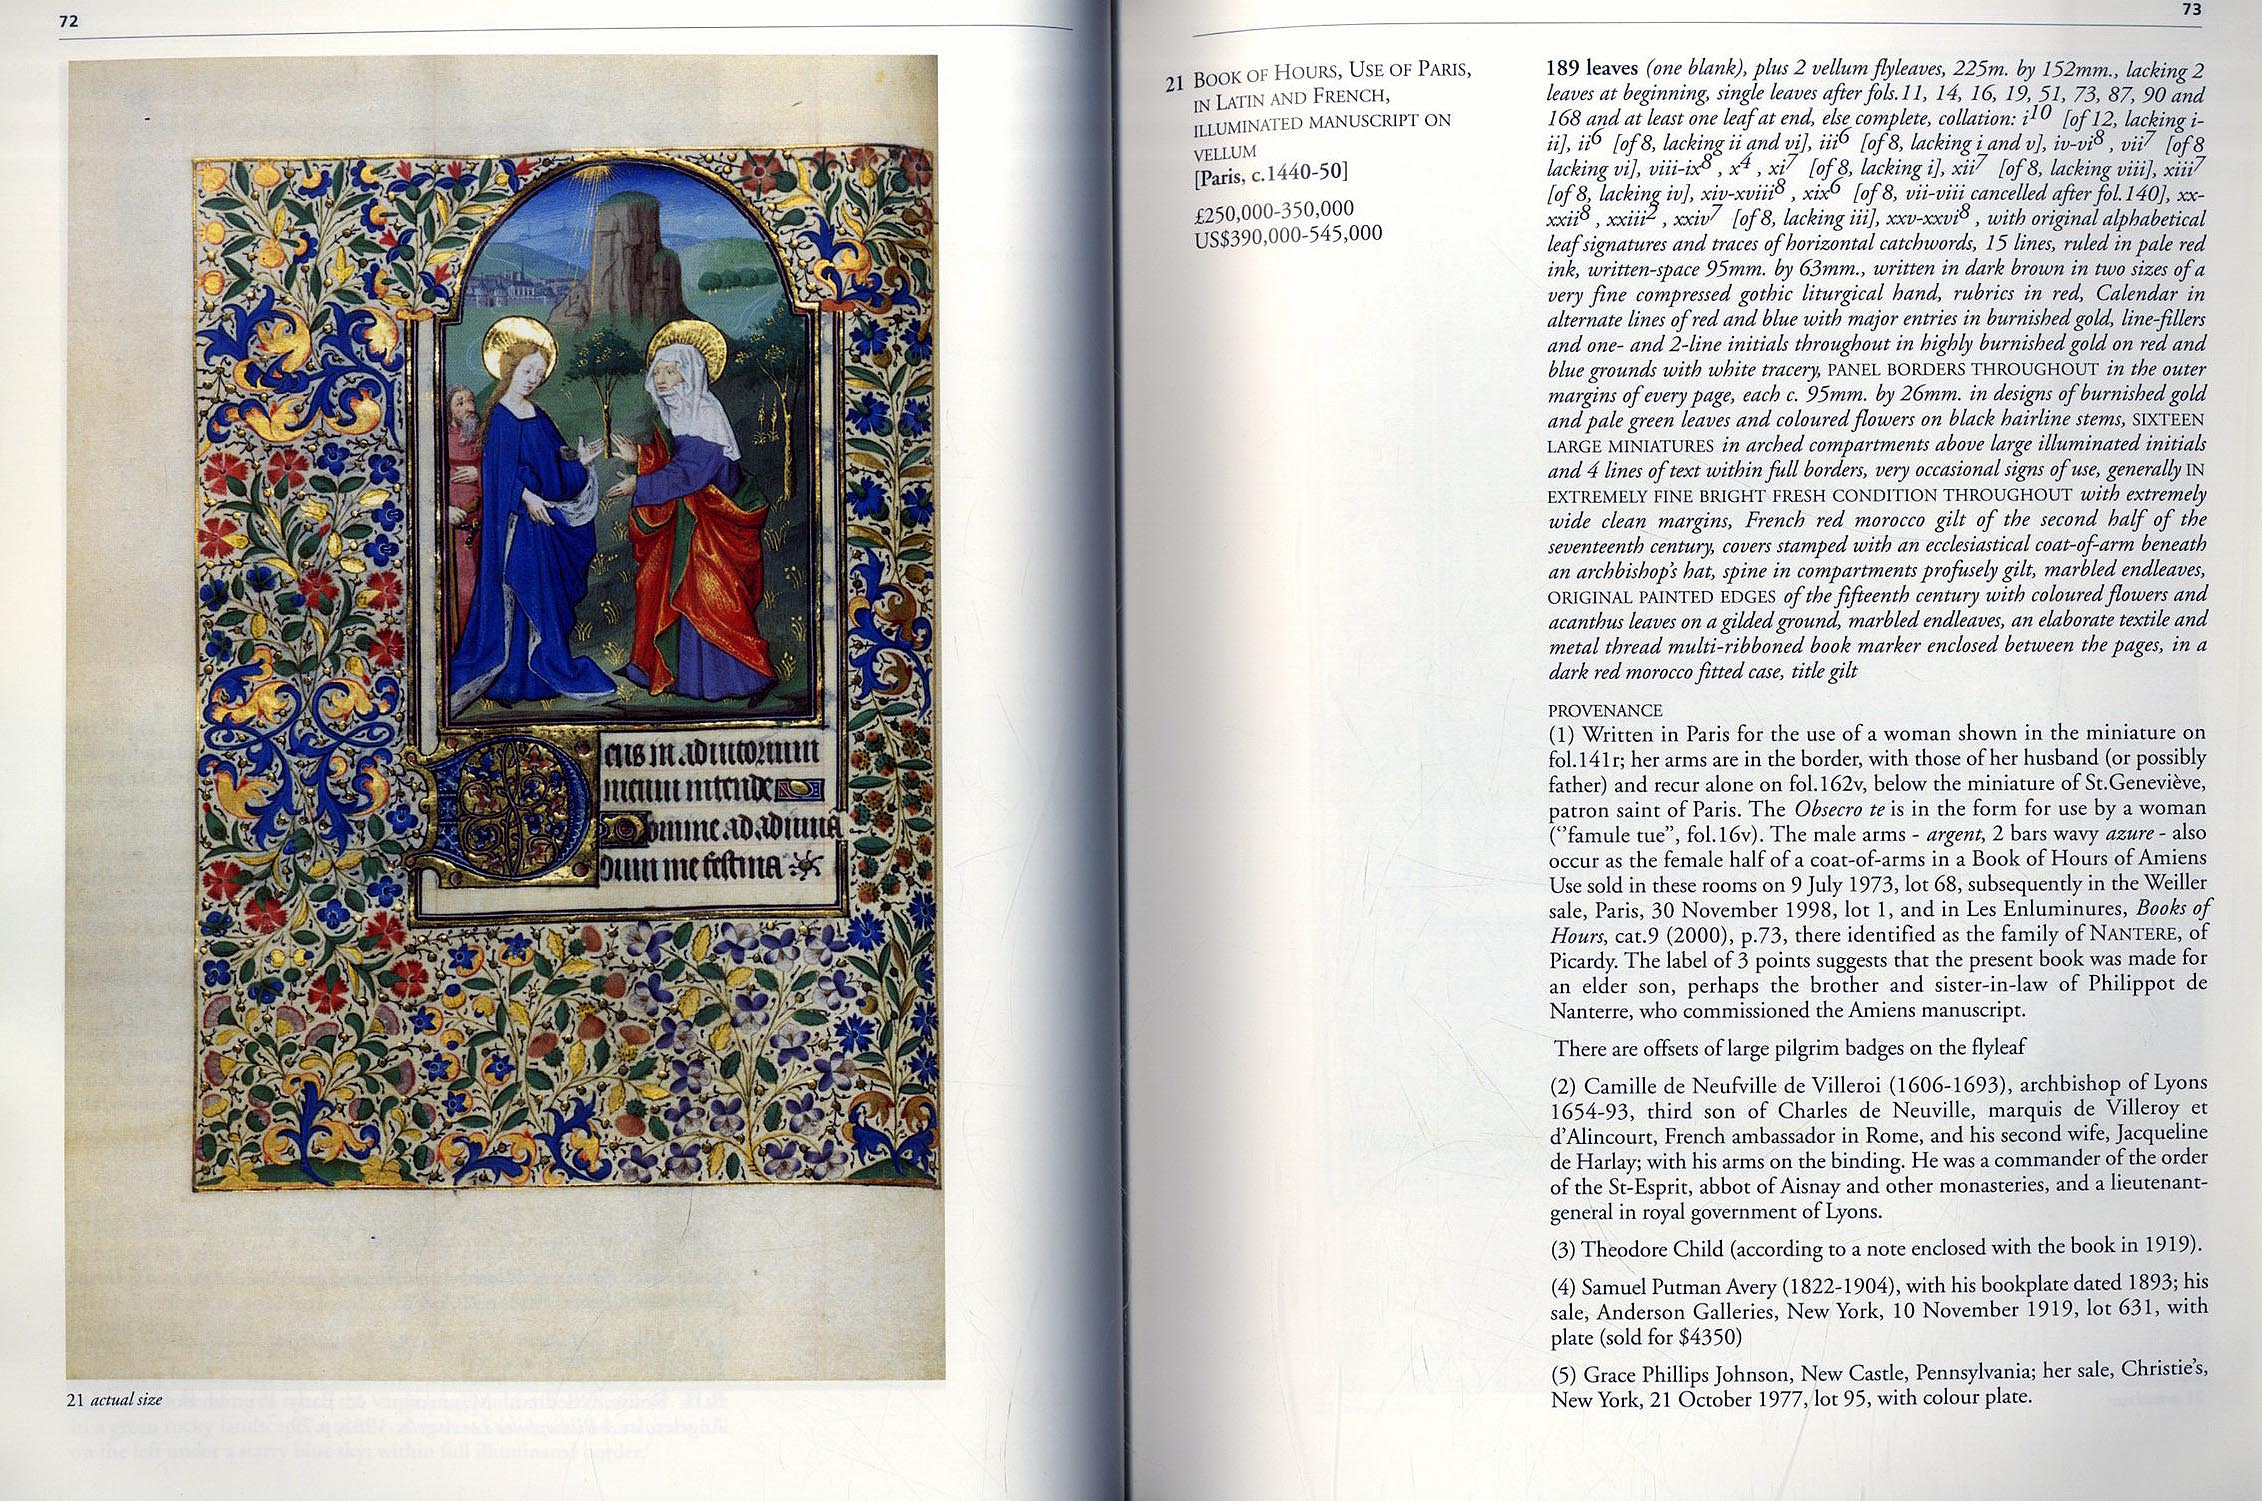 72
eus in adiutorium
meum intende
omine ad adiuuā
dum me festina
21 actual size
73
21 BOOK OF HOURS, USE OF PARIS,
IN LATIN AND FRENCH,
ILLUMINATED MANUSCRIPT ON
VELLUM
[Paris, c.1440-50]
£250,000-350,000
US$390,000-545,000
189 leaves (one blank), plus 2 vellum flyleaves, 225m. by 152mm., lacking 2
leaves at beginning, single leaves after fols.11, 14, 16, 19, 51, 73, 87, 90 and
168 and at least one leaf at end, else complete, collation: i10 [of 12, lacking i-
ii], ii6 [of 8, lacking ii and vi], iii6 [of 8, lacking i and v], iv-vi8 , vii7 [of 8
lacking vi], viii-ix8 , x4 , xi7 [of 8, lacking i], xii7 [of 8, lacking viii], xiii7
[of 8, lacking iv], xiv-xviii8 , xix6 [of 8, vii-viii cancelled after fol.140], xx-
xxii8 , xxiii2 , xxiv7 [of 8, lacking iii], xxv-xxvi8 , with original alphabetical
leaf signatures and traces of horizontal catchwords, 15 lines, ruled in pale red
ink, written-space 95mm. by 63mm., written in dark brown in two sizes of a
very fine compressed gothic liturgical hand, rubrics in red, Calendar in
alternate lines of red and blue with major entries in burnished gold, line-fillers
and one- and 2-line initials throughout in highly burnished gold on red and
blue grounds with white tracery, PANEL BORDERS THROUGHOUT in the outer
margins of every page, each c. 95mm. by 26mm. in designs of burnished gold
and pale green leaves and coloured flowers on black hairline stems, SIXTEEN
LARGE MINIATURES in arched compartments above large illuminated initials
and 4 lines of text within full borders, very occasional signs of use, generally IN
EXTREMELY FINE BRIGHT FRESH CONDITION THROUGHOUT with extremely
wide clean margins, French red morocco gilt of the second half of the
seventeenth century, covers stamped with an ecclesiastical coat-of-arm beneath
an archbishop's hat, spine in compartments profusely gilt, marbled endleaves,
ORIGINAL PAINTED EDGES of the fifteenth century with coloured flowers and
acanthus leaves on a gilded ground, marbled endleaves, an elaborate textile and
metal thread multi-ribboned book marker enclosed between the pages, in a
dark red morocco fitted case, title gilt
PROVENANCE
(1) Written in Paris for the use of a woman shown in the miniature on
fol.141r; her arms are in the border, with those of her husband (or possibly
father) and recur alone on fol.162v, below the miniature of St.Geneviève,
patron saint of Paris. The Obsecro te is in the form for use by a woman
(‘’famule tue”, fol.16v). The male arms - argent, 2 bars wavy azure - also
occur as the female half of a coat-of-arms in a Book of Hours of Amiens
Use sold in these rooms on 9 July 1973, lot 68, subsequently in the Weiller
sale, Paris, 30 November 1998, lot 1, and in Les Enluminures, Books of
Hours, cat.9 (2000), p.73, there identified as the family of NANTERE, of
Picardy. The label of 3 points suggests that the present book was made for
an elder son, perhaps the brother and sister-in-law of Philippot de
Nanterre, who commissioned the Amiens manuscript.
There are offsets of large pilgrim badges on the flyleaf
(2) Camille de Neufville de Villeroi (1606-1693), archbishop of Lyons
1654-93, third son of Charles de Neuville, marquis de Villeroy et
d'Alincourt, French ambassador in Rome, and his second wife, Jacqueline
de Harlay; with his arms on the binding. He was a commander of the order
of the St-Esprit, abbot of Aisnay and other monasteries, and a lieutenant-
general in royal government of Lyons.
(3) Theodore Child (according to a note enclosed with the book in 1919).
(4) Samuel Putman Avery (1822-1904), with his bookplate dated 1893; his
sale, Anderson Galleries, New York, 10 November 1919, lot 631, with
plate (sold for $4350)
(5) Grace Phillips Johnson, New Castle, Pennsylvania; her sale, Christie's,
New York, 21 October 1977, lot 95, with colour plate.